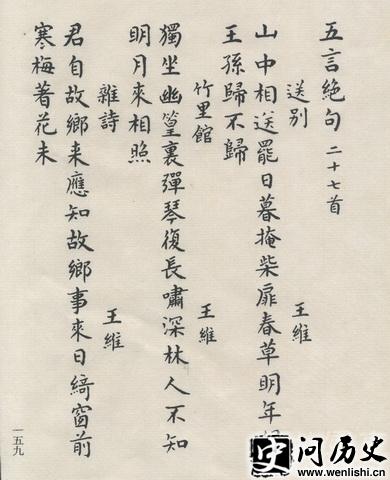 五言絶句 二十七首
送别 王維
山中相送罷日暮掩柴扉春草明年
王孫歸不歸
竹里館 王維
獨坐幽篁裏彈琴復長嘯深林人不知
明月來相照
雜詩 王維
君自故鄉来應知故鄉事來日綺窗前
寒梅著花未
一五九
史问历史
www.wenlishi.cn